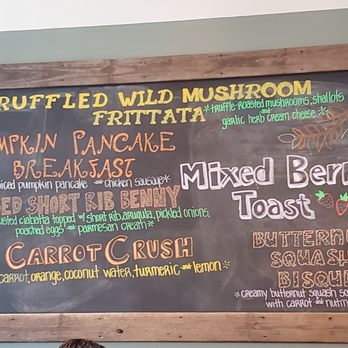 RUFFLED WILD MUSHROOM
FRITTATA *truffle-roasted mushrooms, shallots
and garlic herb cream cheese*
MPKIN PANCAKE
BREAKFAST
iced pumpkin pancake and chicken sausage*
ED SHORT RIB BENNY
usted ciabatta topped w/ short rib, arugula, pickled onions,
poached eggs and parmesan cream*
CARROT CRUSH
carrot, orange, coconut water, turmeric and lemon*
Mixed Berr
Toast
BUTTERNU
SQUASH
BISQUE
*creamy butternut squash so
with carrot and nutm